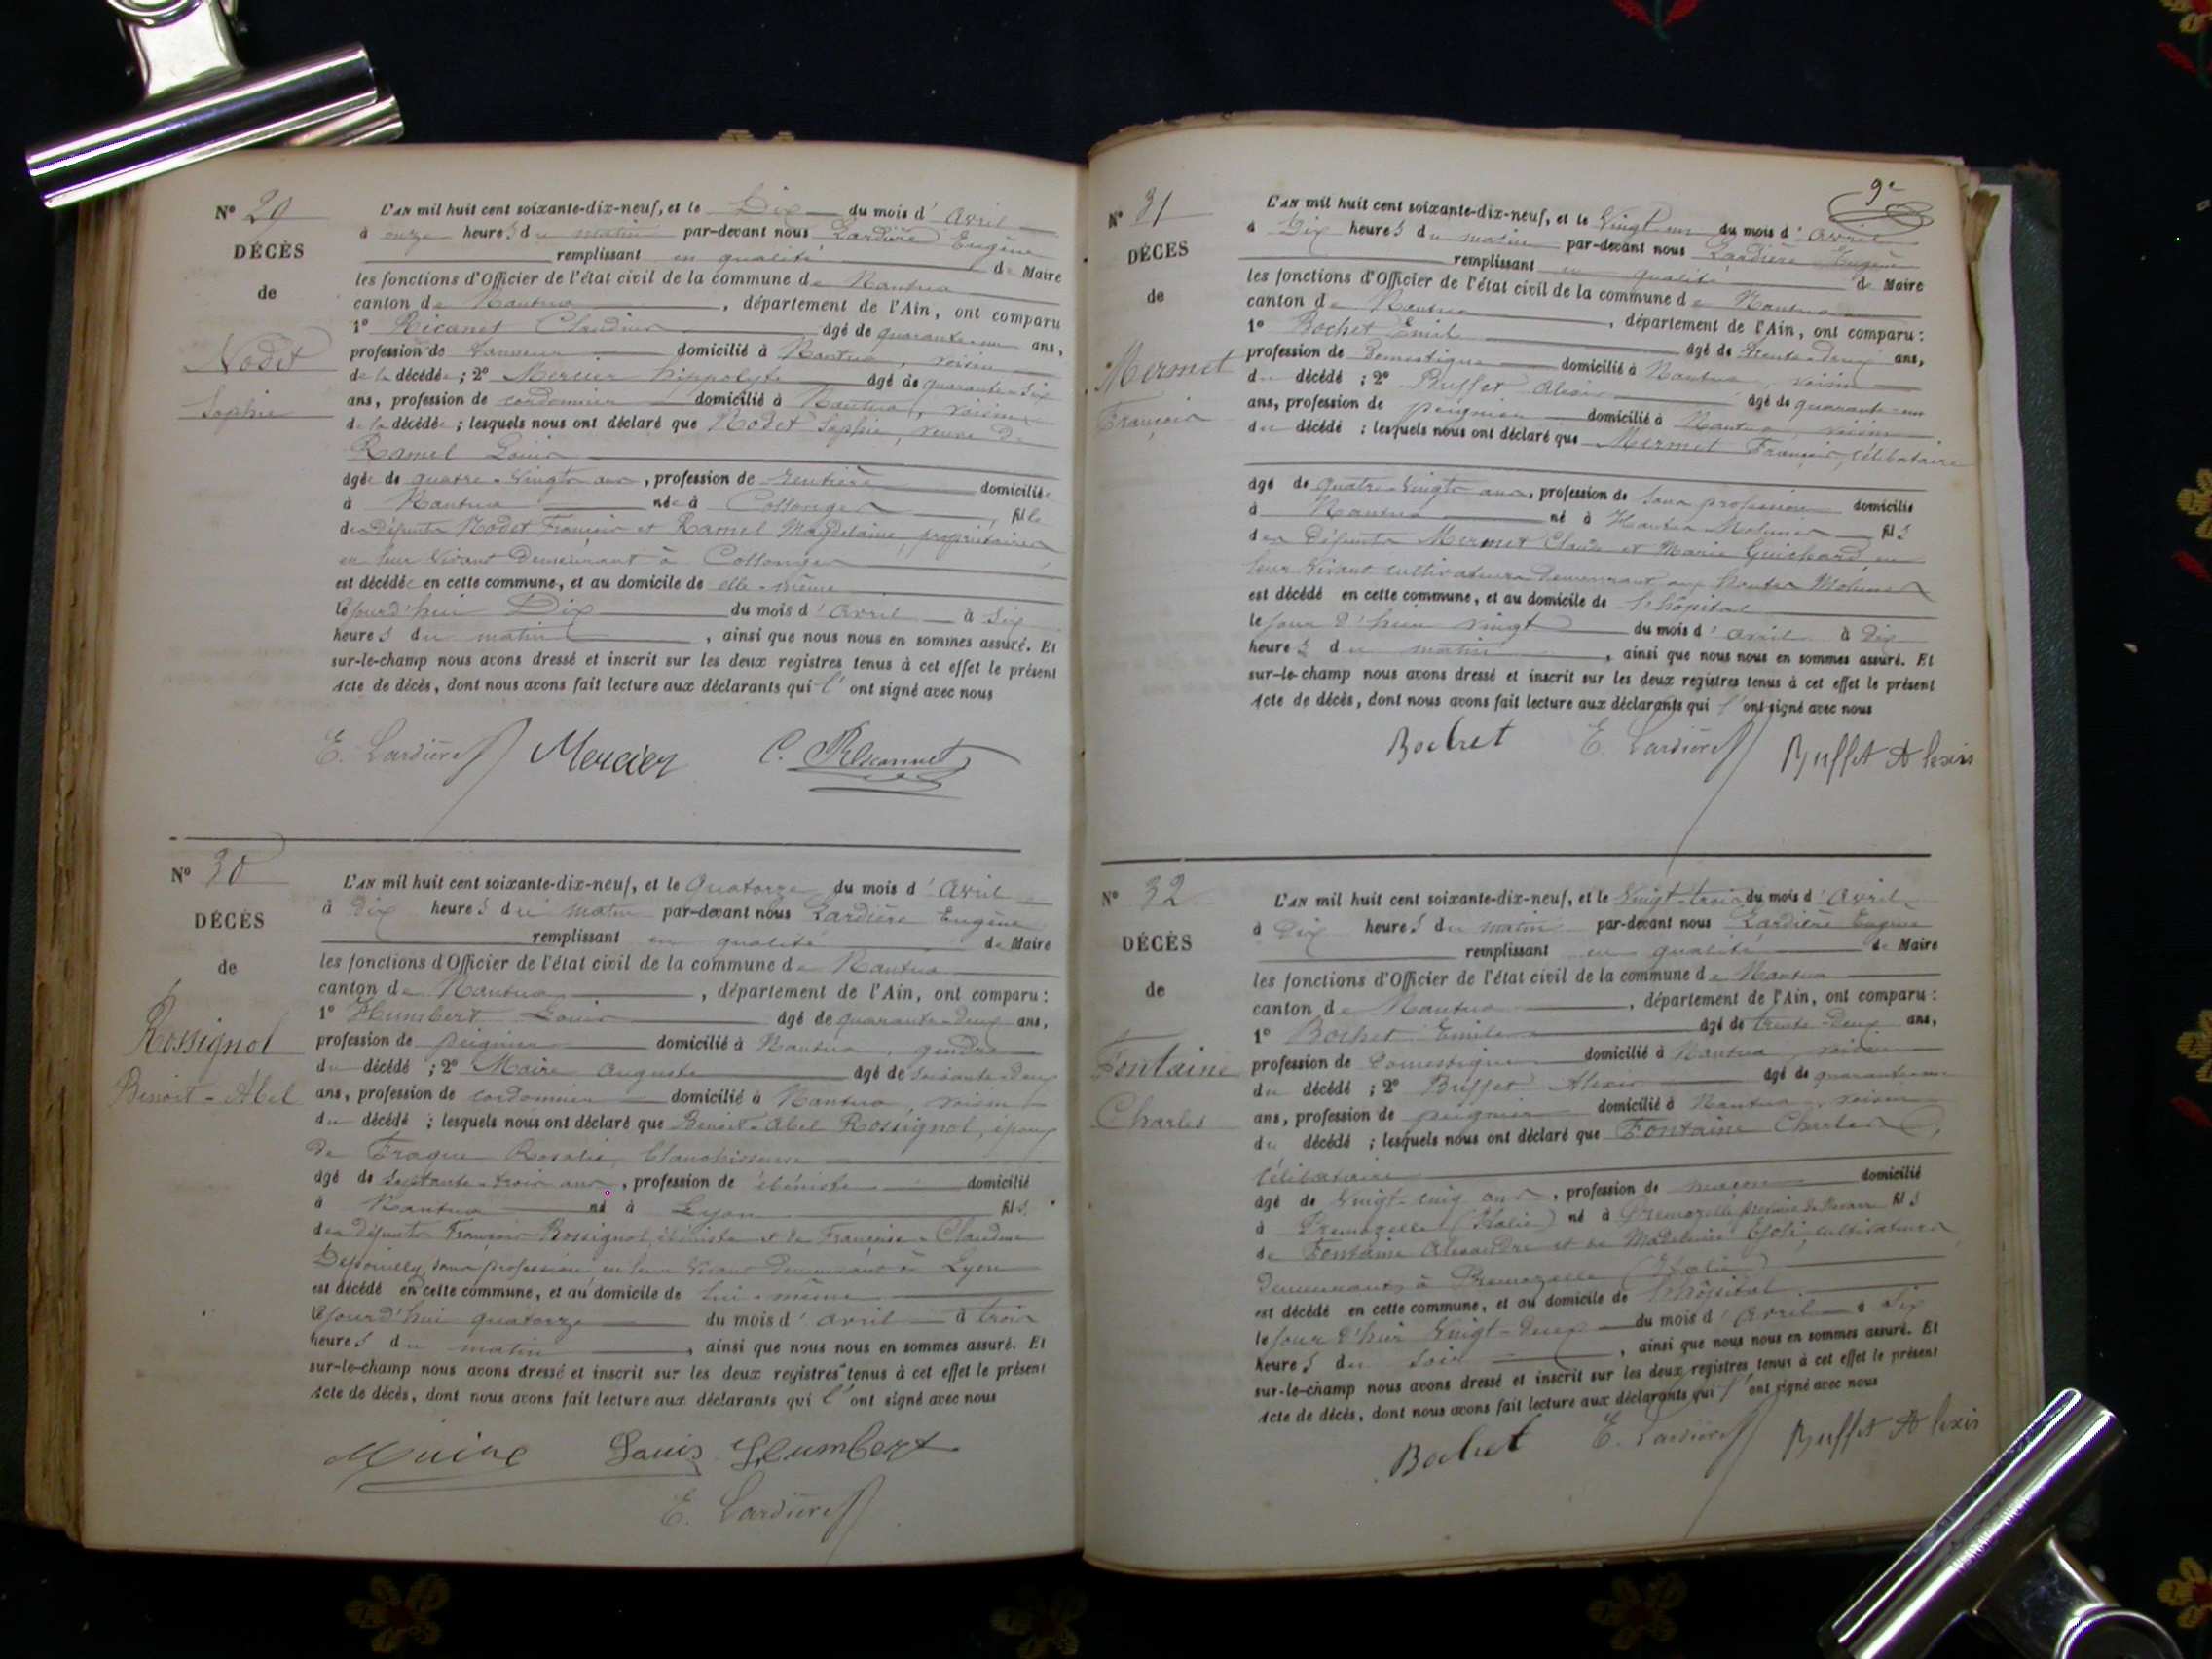 N° 29
DÉCÈS
de
Nodet
Sophie
L'AN mil huit cent soixante-dix-neuf, et le Dix du mois d'Avril
à onze heures du matin par-devant nous Lardière Eugène
remplissant en qualité de Maire
les fonctions d'Officier de l'état civil de la commune de Nantua
canton de Nantua, département de l'Ain, ont comparu
1° Ricanet Claudius âgé de quarante-un ans,
profession de domicilié à Nantua, voisin
de la décédée; 2° Mercier hippolyte âgé de quarante-six
ans, profession de cordonnier domicilié à Nantua, voisin
de la décédée; lesquels nous ont déclaré que Nodet Sophie, veuve de
Ramel Louis
âgée de quatre-vingts ans, profession de rentière domiciliée
à Nantua née à Collonges, fille
des défunts Nodet François et Ramel Magdelaine, propriétaires
en leur vivant demeurant à Collonges
est décédée en cette commune, et au domicile de elle-même
lejourd'hui Dix du mois d'avril à six
heures du matin, ainsi que nous nous en sommes assuré. Et
sur-le-champ nous avons dressé et inscrit sur les deux registres tenus à cet effet le présent
Acte de décès, dont nous avons fait lecture aux déclarants qui l'ont signé avec nous
E. Lardière Mercier C. Riscannet
N° 30
DÉCÈS
de
Rossignol
Benoit-Abel
L'AN mil huit cent soixante-dix-neuf, et le Quatorze du mois d'Avril
à Dix heures du matin par-devant nous Lardière Eugène
remplissant en qualité de Maire
les fonctions d'Officier de l'état civil de la commune de Nantua
canton de Nantua, département de l'Ain, ont comparu:
1° Humbert Louis âgé de quarante-deux ans,
profession de peignier domicilié à Nantua, gendre
du décédé; 2° Maire Auguste âgé de soixante-deux
ans, profession de cordonnier domicilié à Nantua, voisin
du décédé; lesquels nous ont déclaré que Benoit-Abel Rossignol, époux
de Frague Rosalie, blanchisseuse
âgé de septante-trois ans, profession de ébéniste domicilié
à Nantua né à Lyon fils
des défunts François Rossignol, ébéniste et de Françoise-Claudine
Depouilly, sans profession en leur vivant demeurant à Lyon
est décédé en cette commune, et au domicile de lui-même
lejourd'hui quatorze du mois d'avril à trois
heures du matin, ainsi que nous nous en sommes assuré. Et
sur-le-champ nous avons dressé et inscrit sur les deux registres tenus à cet effet le présent
Acte de décès, dont nous avons fait lecture aux déclarants qui l'ont signé avec nous
Maire Louis Humbert
E. Lardière
9e
N° 31
DÉCÈS
de
Mermet
François
L'AN mil huit cent soixante-dix-neuf, et le Vingt-un du mois d'avril
à Dix heures du matin par-devant nous Lardière Eugène
remplissant en qualité de Maire
les fonctions d'Officier de l'état civil de la commune de Nantua
canton de Nantua, département de l'Ain, ont comparu:
1° Bochet Emile âgé de trente-deux ans,
profession de domestique domicilié à Nantua, voisin
du décédé; 2° Buffet Alexis âgé de quarante-un
ans, profession de peignier domicilié à Nantua, voisin
du décédé; lesquels nous ont déclaré que Mermet François, célibataire
âgé de quatre-vingts ans, profession de sans profession domicilié
à Nantua né à Hautes Molunes fils
des défunts Mermet Claude et Marie Guichard, en
leur vivant cultivateurs demeurant aux hautes Molunes
est décédé en cette commune, et au domicile de l'hôpital
le jour d'hier vingt du mois d'avril à dix
heures du matin, ainsi que nous nous en sommes assuré. Et
sur-le-champ nous avons dressé et inscrit sur les deux registres tenus à cet effet le présent
Acte de décès, dont nous avons fait lecture aux déclarants qui l'ont signé avec nous
Bochet E. Lardière Buffet Alexis
N° 32
DÉCÈS
de
Fontaine
Charles
L'AN mil huit cent soixante-dix-neuf, et le Vingt-trois du mois d'Avril
à Dix heures du matin par-devant nous Lardière Eugène
remplissant en qualité de Maire
les fonctions d'Officier de l'état civil de la commune de Nantua
canton de Nantua, département de l'Ain, ont comparu:
1° Bochet Emile âgé de trente-deux ans,
profession de domestique domicilié à Nantua, voisin
du décédé; 2° Buffet Alexis âgé de quarante-un
ans, profession de peignier domicilié à Nantua, voisin
du décédé; lesquels nous ont déclaré que Fontaine Charles,
célibataire
âgé de vingt-cinq ans, profession de maçon domicilié
à Premozelle (Italie) né à Premozelle province de fils
de Fontaine Alexandre et de Madeleine cultivateurs
demeurant à Premozelle (Italie)
est décédé en cette commune, et au domicile de l'hôpital
le jour d'hier vingt-deux du mois d'avril à six
heures du soir, ainsi que nous nous en sommes assuré. Et
sur-le-champ nous avons dressé et inscrit sur les deux registres tenus à cet effet le présent
Acte de décès, dont nous avons fait lecture aux déclarants qui l'ont signé avec nous
Bochet E. Lardière Buffet Alexis